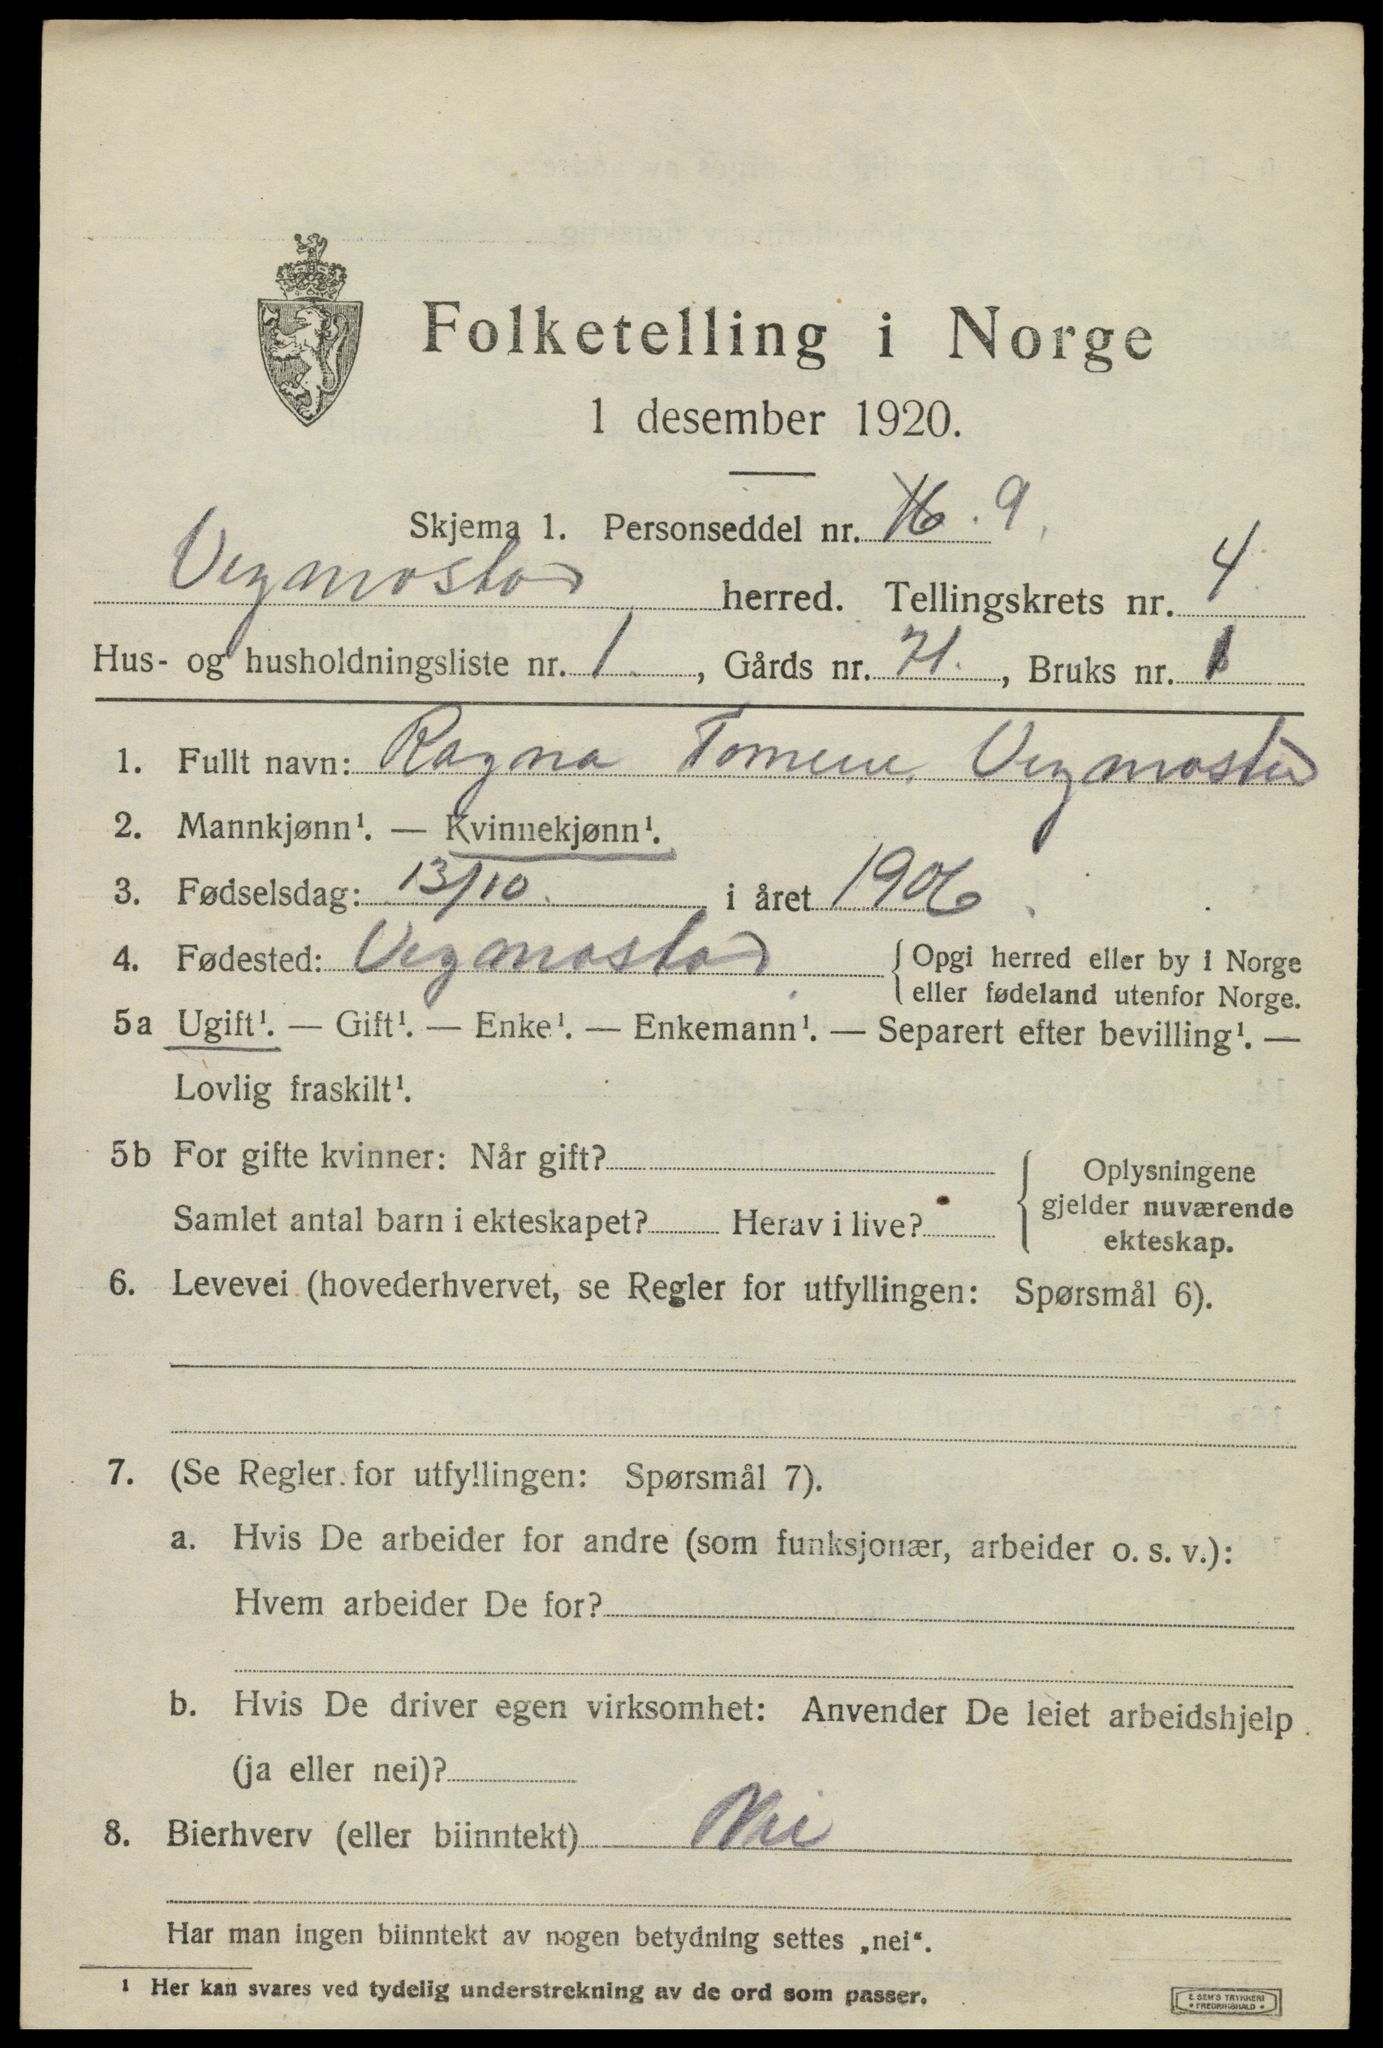 Folketelling i Norge
1 desember 1920.
Skjema 1. Personseddel nr. 16. 9.
Vegmostad herred. Tellingskrets nr. 4
Hus- og husholdningsliste nr. 1., Gårds nr. 21., Bruks nr. 1
1. Fullt navn: Ragna Tomine Vegmostad
2. Mannkjønn¹. — Kvinnekjønn¹.
3. Fødselsdag: 13/10. i året 1906.
4. Fødested: Vegmostad. { Opgi herred eller by i Norge
eller fødeland utenfor Norge.
5a Ugift¹. — Gift¹. — Enke¹. — Enkemann¹. — Separert efter bevilling¹. —
Lovlig fraskilt¹.
5b For gifte kvinner: Når gift?
Samlet antal barn i ekteskapet? Herav i live?
{ Oplysningene
gjelder nuværende
ekteskap.
6. Levevei (hovederhvervet, se Regler for utfyllingen: Spørsmål 6).
7. (Se Regler for utfyllingen: Spørsmål 7).
a. Hvis De arbeider for andre (som funksjonær, arbeider o. s. v.):
Hvem arbeider De for?
b. Hvis De driver egen virksomhet: Anvender De leiet arbeidshjelp
(ja eller nei)?
8. Bierhverv (eller biinntekt) Nei
Har man ingen biinntekt av nogen betydning settes „nei“.
¹ Her kan svares ved tydelig understrekning av de ord som passer.
E SEM'S TRYKKERI
• FREDRIKSHALD •